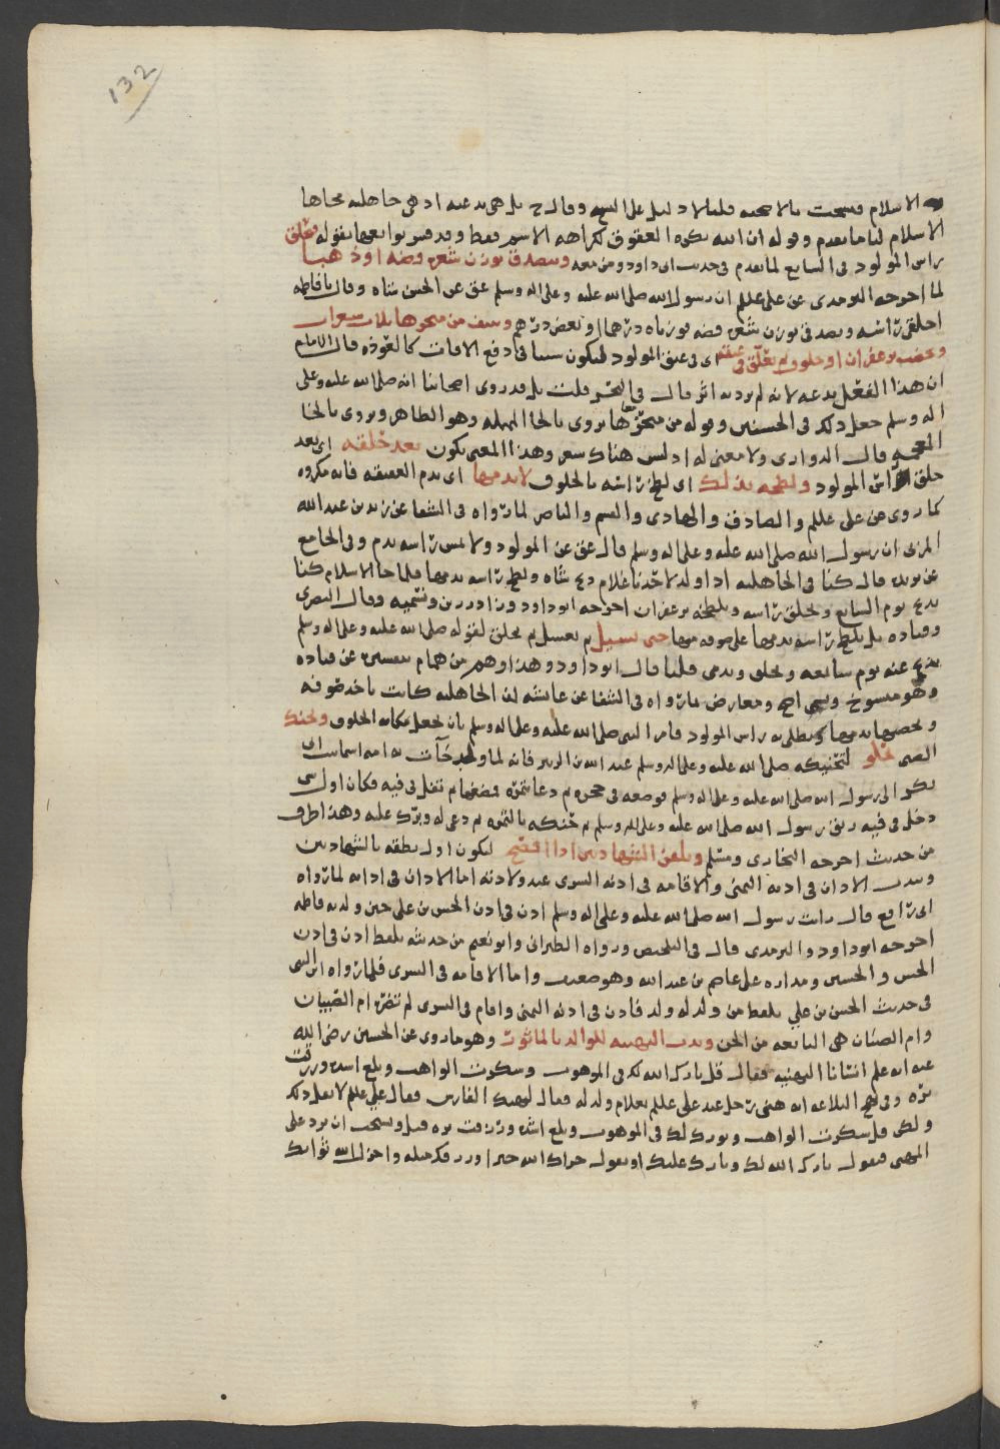 132
الاسلام فنسخت بالاضحيه قلنا لا دليل على النسخ وقال ح بل هي بدعه اذ هي جاهليه محاها
الاسلام لنا ما تقدم وقوله ان الله يكره العقوق كراهه الاسم فقط وقد فسر توابعها بقوله وحلق
راس المولود في السابع لما تقدم في حديث ابي داود ومن معه وتصدق بوزن شعره فضه او ذهبا
لما اخرجه الترمذي عن علي علكلم ان رسول الله صلى الله عليه وعلى اله وسلم عق عن الحسن بشاه وقال يا فاطمه
احلقي راسه وتصدقي بوزن شعره فضه فوزناه درهما او بعض درهم وينتف من منحرها ثلاث شعرات
وتخضب بزعفران او خلوق ثم تعلق في عنقه اي في عنق المولود لتكون سببا في دفع الافات كالعوذه قال الامام
ان هذا الفعل بدعه لانه لم يرد به اثر قال في البحر قلت بل قد روى اصحابنا انه صلى الله عليه وعلى
اله وسلم جعل ذلك في الحسنين وقوله من منحرها يروى بالحا المهمله وهو الظاهر ويروى بالخا
المعجمه قال الدواري ولا معنى له اذ ليس هناك شعر وهذا المعنى يكون بعد حلقه اي بعد
حلق راس المولود ولطخه بذلك اي لطخ راسه بالخلوق لا بدمها اي بدم العقيقه فانه مكروه
كما روي عن علي علكلم والصادق والهادي والقسم والناصر لما رواه في الشفا عن زيد بن عبد الله
المزني ان رسول الله صلى الله عليه وعلى اله وسلم قال عق عن المولود ولا يمس راسه بدم وفي الجامع
عن بريده قال كنا في الجاهليه اذا ولد لاحدنا غلام ذبح شاه ولطخ راسه بدمها فلما جا الاسلام كنا
نذبح يوم السابع ونحلق راسه ونلطخه بزعفران اخرجه ابو داود وزاد رزين ونسميه وقال البصري
وقتاده بل يلطخ راسه بدمها على صوفه منها حتى تسيل ثم يغسل ثم يحلق لقوله صلى الله عليه وعلى اله وسلم
يذبح عنه يوم سابعه ويحلق ويدمى قلنا قال ابو داود وهذا وهم من همام بتفسير عن قتاده
وهو منسوخ ويسمى اصح ومعارض بما رواه في الشفا عن عائشه ان الجاهليه كانت ياخذ صوفه
ويخضبها بدمها ويطلى به راس المولود فامر النبي صلى الله عليه وعلى اله وسلم بان يجعل مكانه الخلوق وتحنيك
الصبي بحلو لتحنيكه صلى الله عليه وعلى اله وسلم عبد الله بن الزبير فانه لما ولد جآت به امه اسما بنت ابي
بكر الى رسول الله صلى الله عليه وعلى اله وسلم فوضعه في حجره ثم دعا بتمره فمضغها ثم تفل في فيه فكان اول شي
دخل في فيه ريق رسول الله صلى الله عليه وعلى اله وسلم ثم حنكه بالتمره ثم دعى له وبرك عليه وهذا طرف
من حديث اخرجه البخاري ومسلم وتلقن الشهادتين اذا افصح ليكون اول نطقه بالشهادتين
وندب الاذان في اذنه اليمنى والاقامه في اذنه اليسرى عند ولادته اما الاذان في اذانه لما رواه
ابي رافع قال رايت رسول الله صلى الله عليه وعلى اله وسلم اذن في اذن الحسن بن علي حين ولدته فاطمه
اخرجه ابو داود والترمذي قال في التلخيص ورواه الطبراني وابو نعيم من حديثه بلفظ اذن في اذن
الحسن والحسين ومداره على عاصم بن عبد الله وهو ضعيف واما الاقامه في اليسرى فلما رواه ابن السني
في حديث الحسن بن علي بلفظ من ولد له ولد فاذن في اذنه اليمنى واقام في اليسرى لم تضره ام الصبيان
وام الصبيان هي التابعه من الجن وندب التهنيه للوالد بالماثور وهو ما روي عن الحسين رضي الله
عنه انه علم انسانا التهنيه فقال قل بارك الله لك في الموهوب وشكرت الواهب وبلغ اشده ورزقت
بره وفي نهج البلاغه انه هنى رجل عند علي علكلم بغلام ولد له فقال ليهنك الفارس فقال علي علكلم لا تقل ذلك
ولكن قل شكرت الواهب وبورك لك في الموهوب وبلغ اشده ورزقت بره قيل ويستحب ان يرد على
المهني فيقول بارك الله لك وبارك عليك او يقول جزاك الله خيرا ورزقك مثله واجزل الله ثوابك